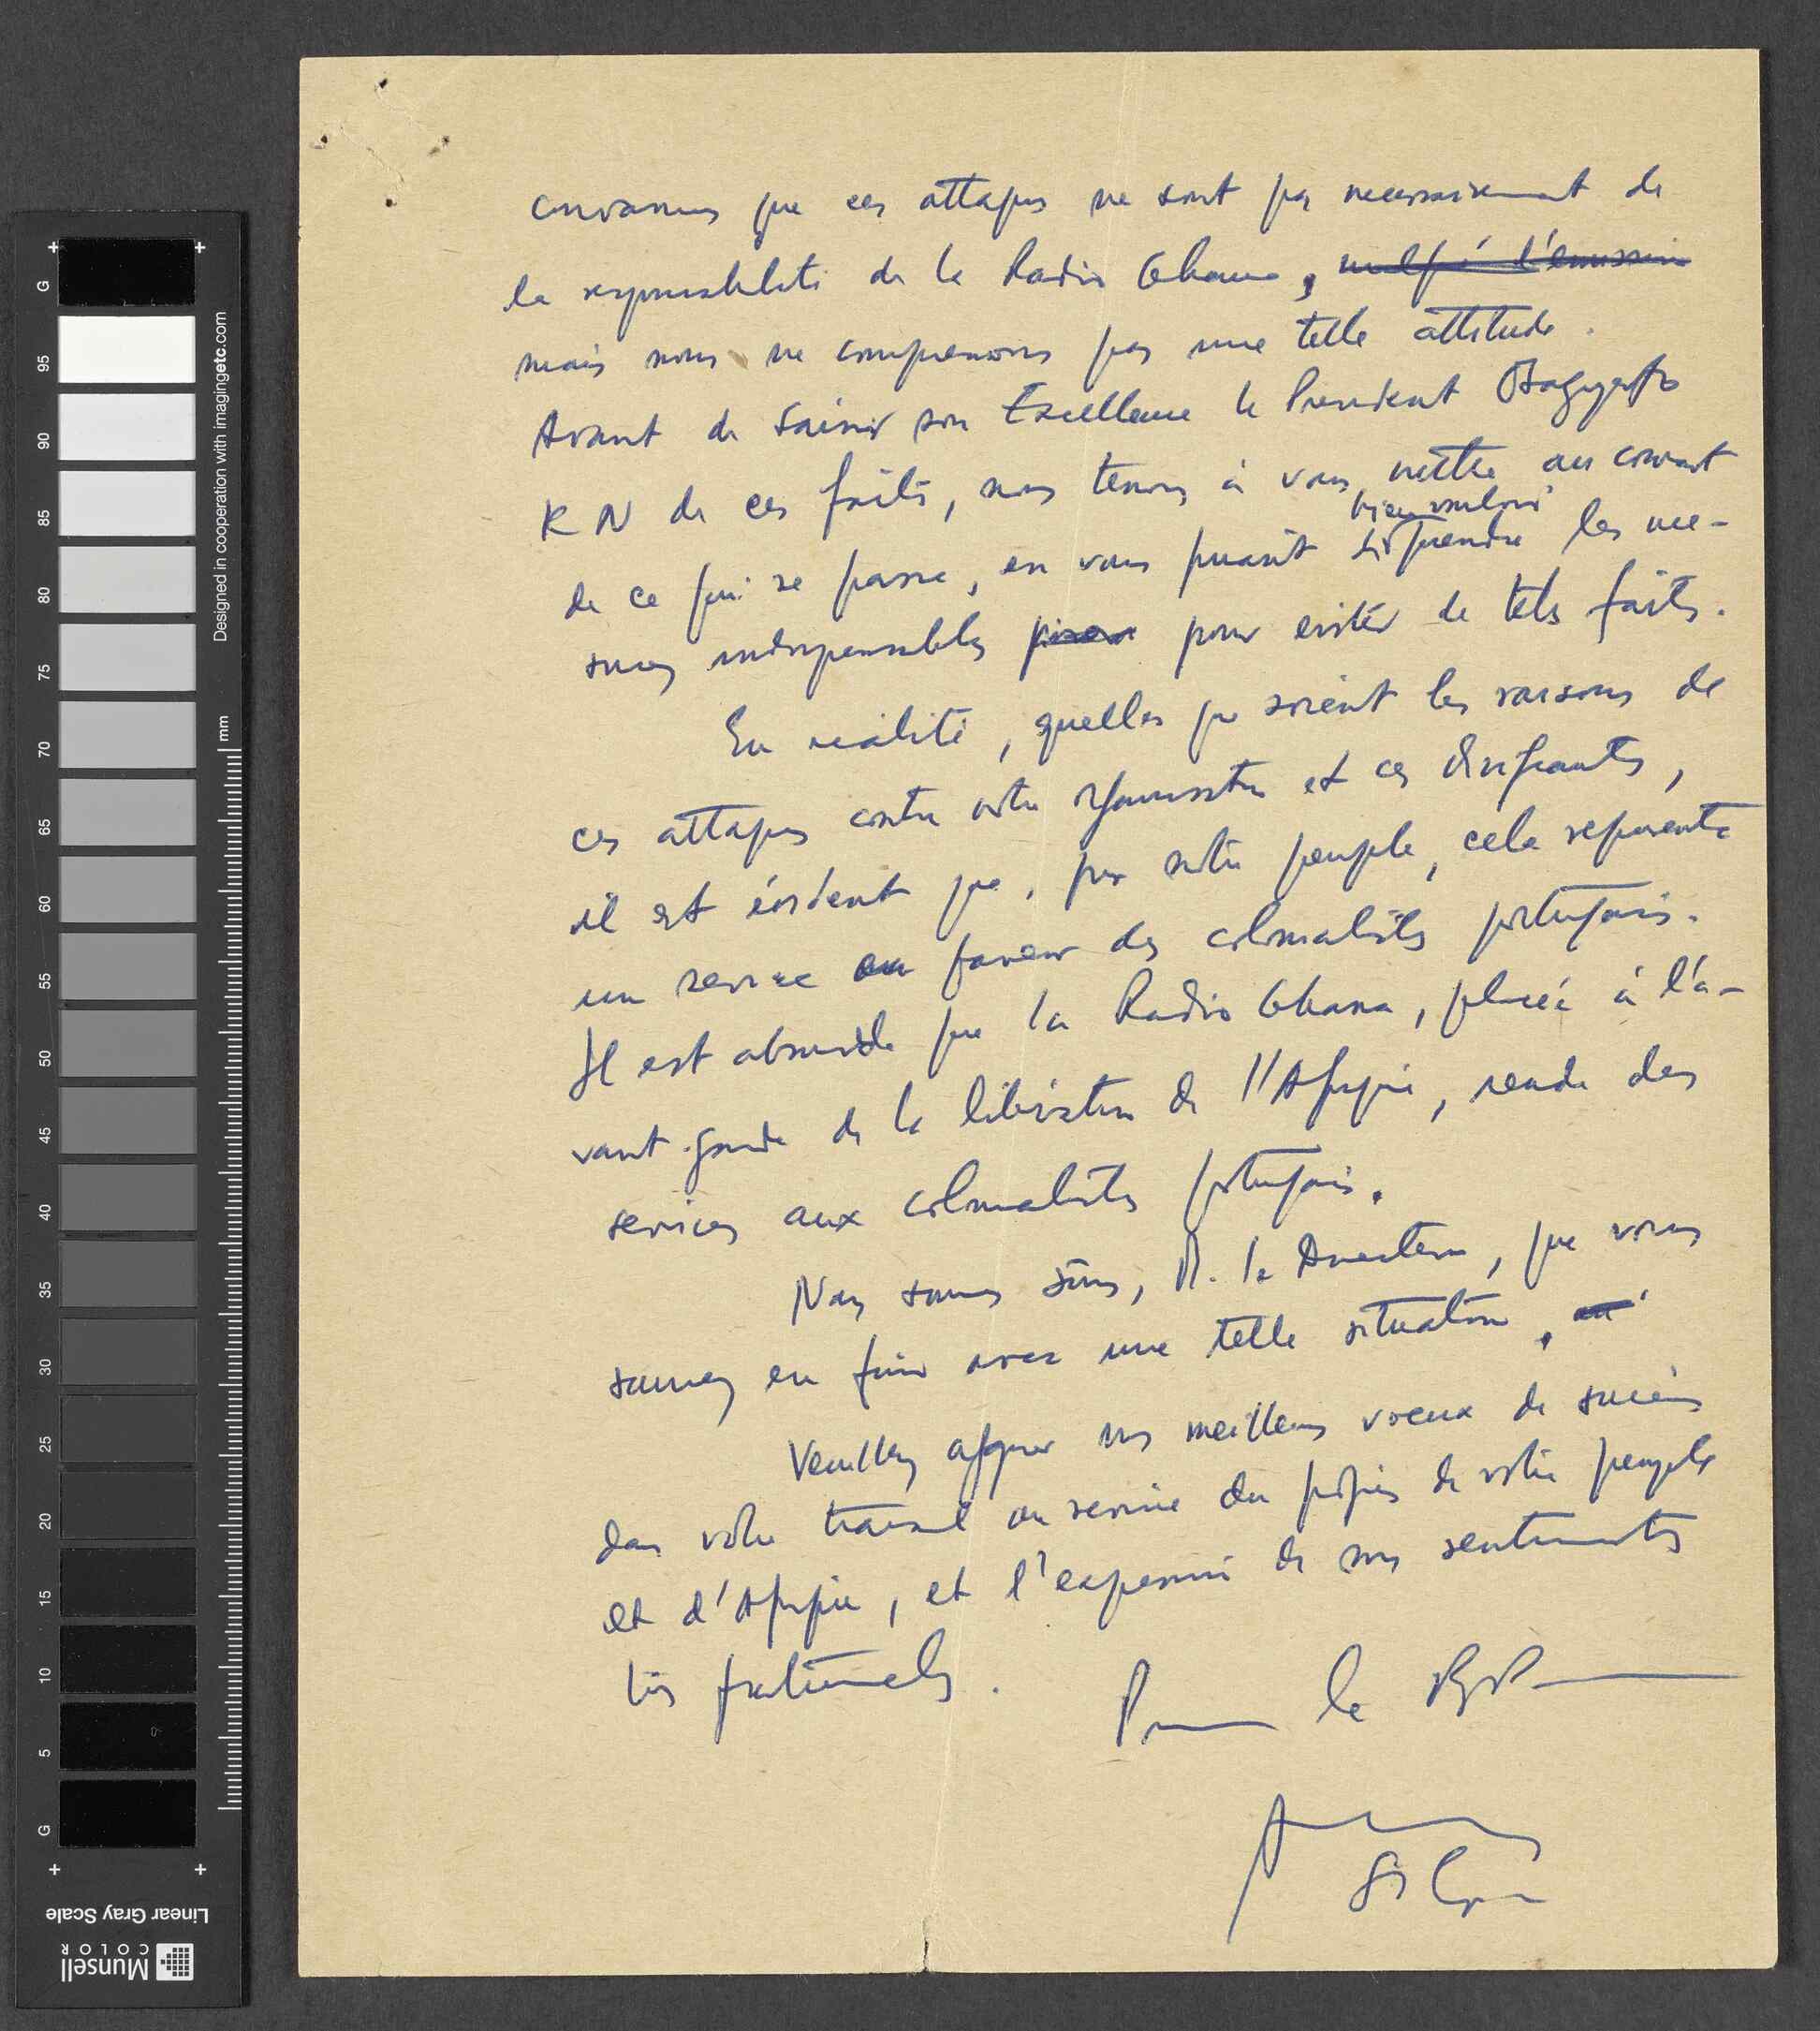 convaincus que ces attaques ne sont pas necessairement de
la responsabilité de la Radio Ghana, malgré l'émission
mais nous ne comprenons pas une telle attitude.
Avant de saisir son Excellence le President Osagyefo
K N de ces faits, nous tenons à vous mettre au courant
de ce qui se passe, en vous priant de bien vouloir prendre les me-
sures indispensables pour eviter de tels faits.
En réalité, quelles que soient les raisons de
ces attaques contre notre organisation et ces dirigeants,
il est évident que, par notre peuple, cela represente
un service en faveur des colonialistes portugais.
Il est absurde que la Radio Ghana, placée à l'a-
vant-garde de la libération de l'Afrique, rende des
services aux colonialistes portugais.
Nous sommes sûrs, M. le Directeur, que vous
saurez en finir avec une telle situation.
Veuillez agréer nos meilleurs voeux de succès
dans votre travail au service du progrès de votre peuple
et d'Afrique, et l'expression de nos sentiments
très fraternels.
Pour le